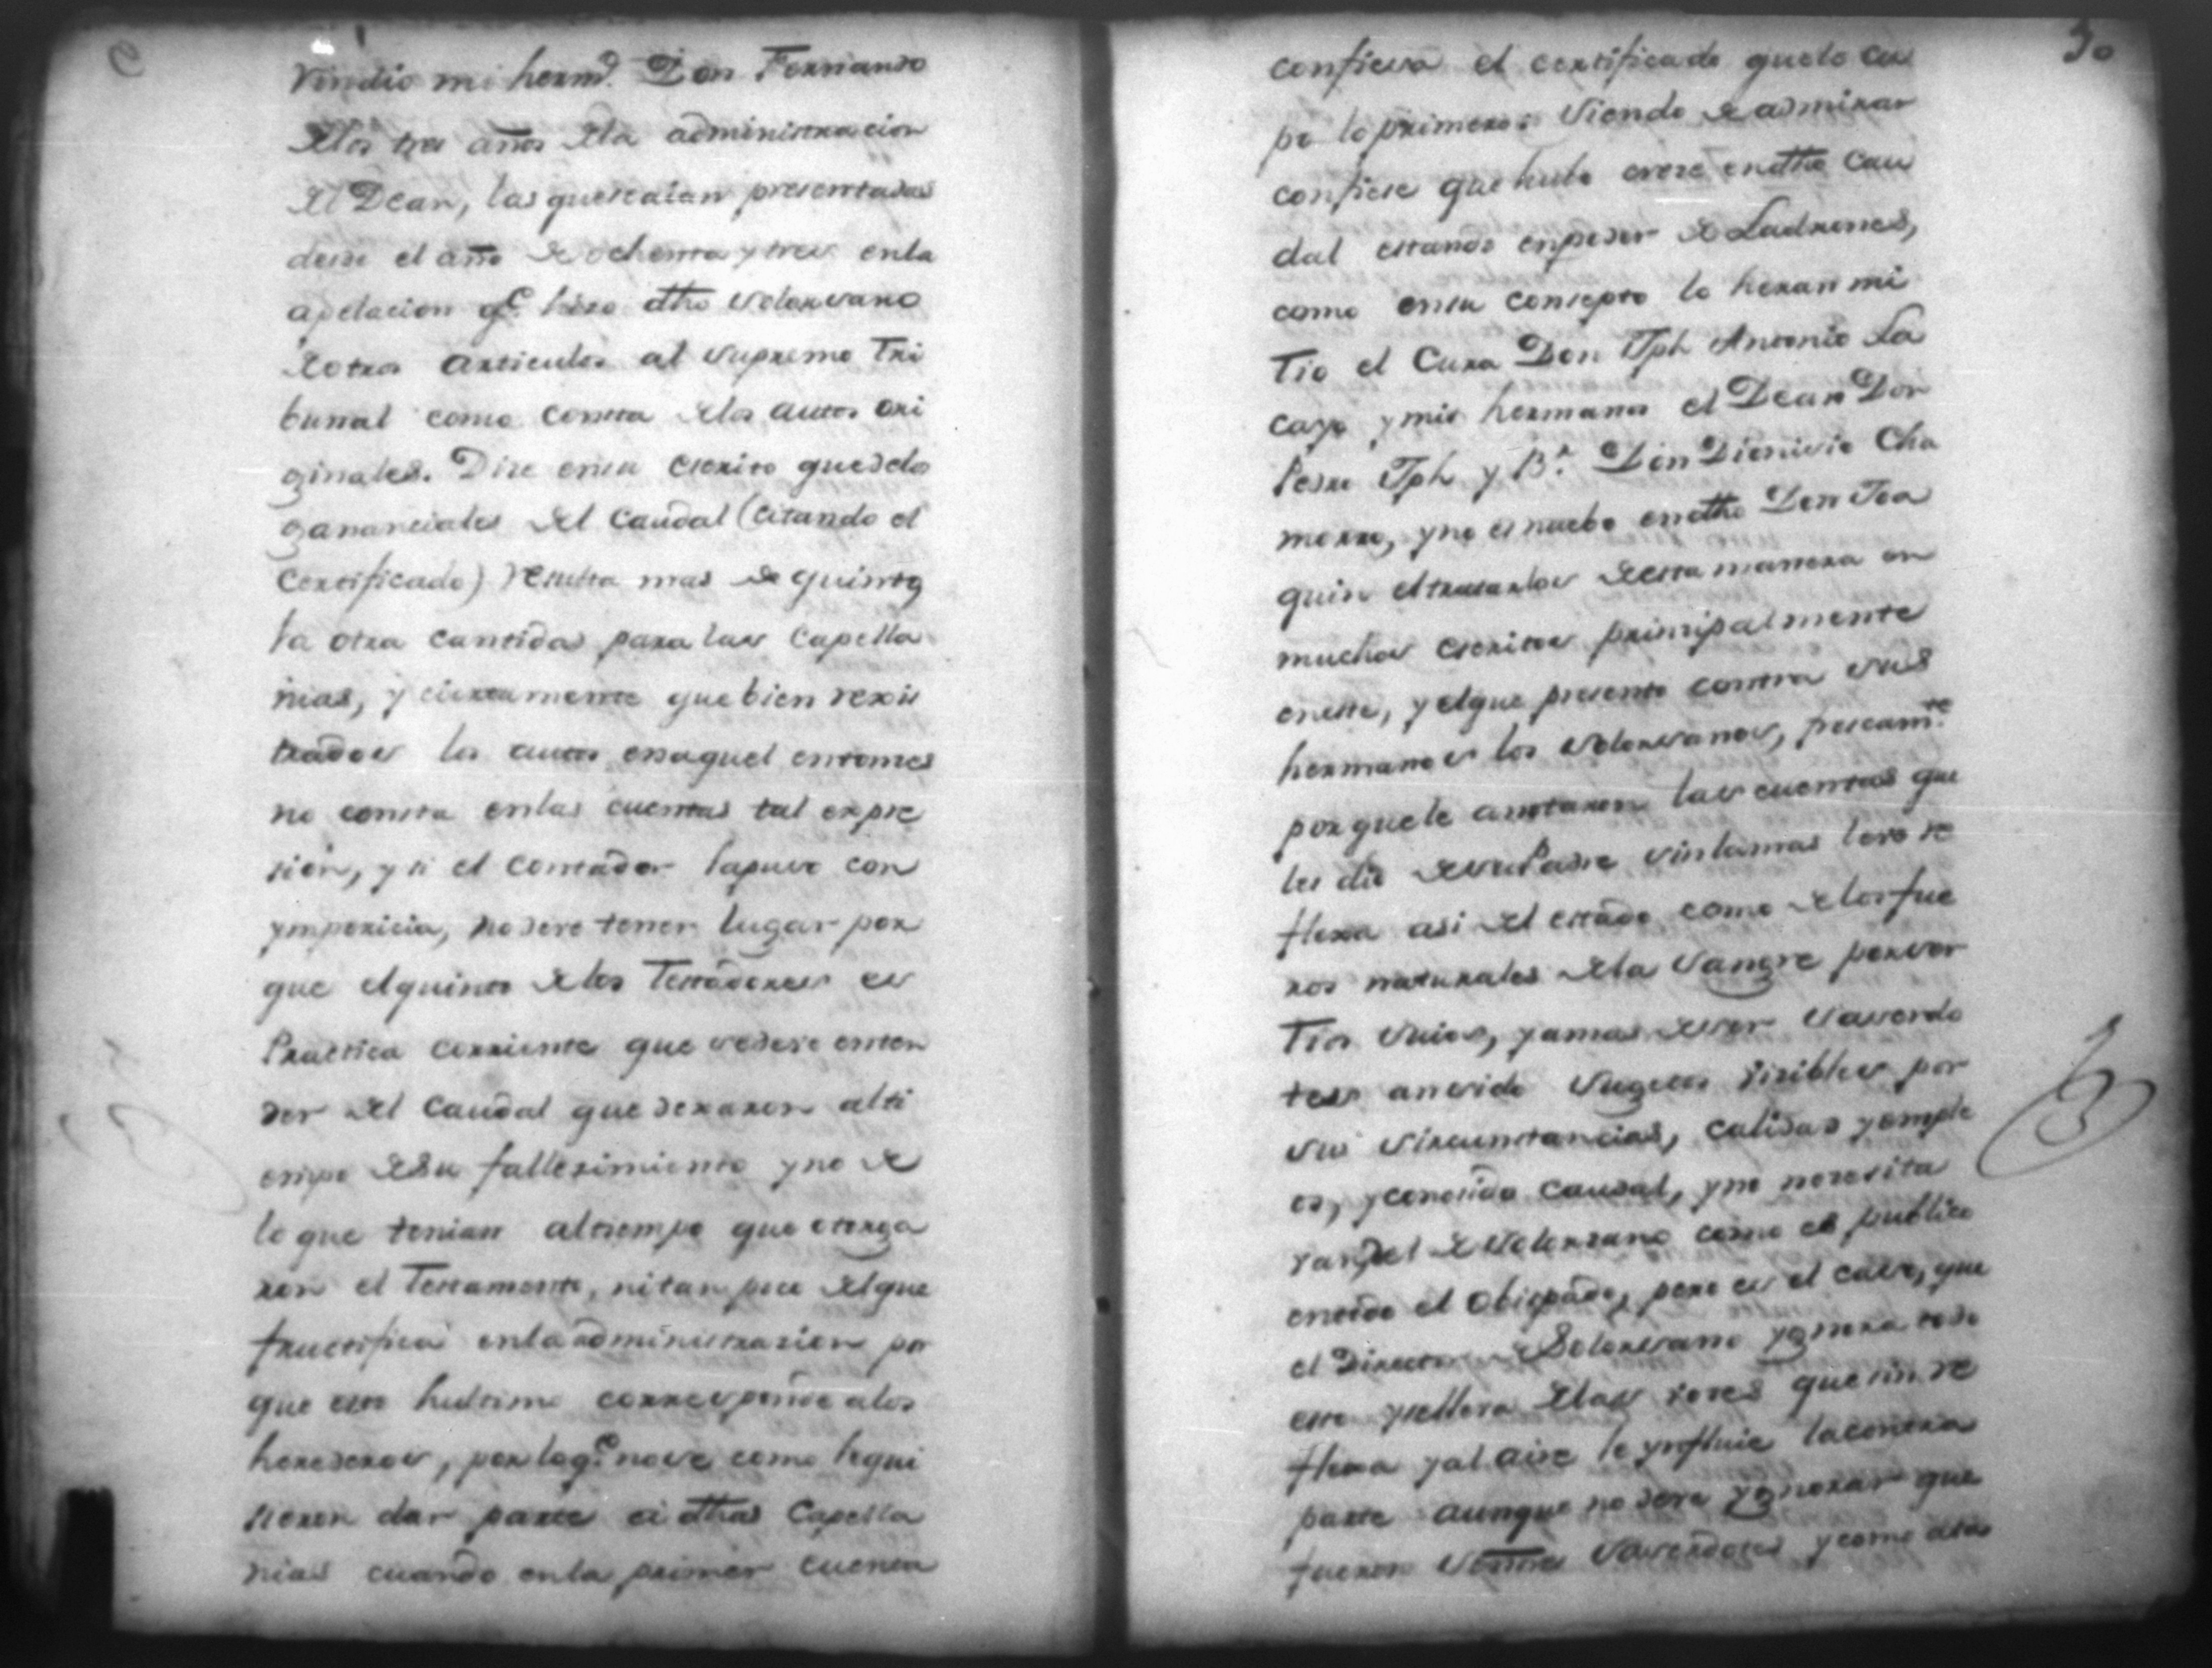 Vendio mi hermo. Don Fernando
delos tres años dela administracion
del Dean, las quesealan presentadas
desde el año de ochenta y tres enla
apelacion qe. hizo dho Solorsano
de otros articulos al Supremo Tri
bunal como consta delos autos ori
ginales. Dise ensu escrito quedelos
gananciales del Caudal (citando el
Certificado) resulta mas de quinto
la otra cantidad para las Capella
nias, y ciertamente que bien rexis
trados los autos enaquel entonses
no consta enlas cuentas tal expre
sion, y si el Contador lapuso con
ympericia, nodeve tener lugar por
que elquinto delos Testadores es
Practica corriente que sedeve enten
der del Caudal que dexaron alti
empo desu fallesimiento y no de
lo que tenian altiempo que otorga
ron el Testamento, nitan poco delque
fructifica enla administrasion por
que este hultimo corresponde alos
herederos, porloqe. nose como lequi
sieron dar parte á dhas Capella
nias cuando enla primer cuenta
30
confiesa el certificado quelo cu
po lo primero: Siendo de admirar
confiese que hubo creze endho Cau
dal estando enpoder de Ladrones,
como ensu consepto lo heran mi
Tio el Cura Don Jph Antonio La
cayo y mis hermanos el Dean Don
Pedro Jph y Br. Don Dionisio Cha
morro, y no es nuebo endho Don Joa
quin eltratarlos desta manera en
muchos escritos prinsipalmente
eneste, y elque presento contra sus
hermanos los Solorsanos, presamte.
porquele anotaron las cuentas que
les dio desu Padre sinlamas leve re
flexa asi del estado como delos fue
ros naturales dela Sangre porser
Tios Suios, y amas deser Saserdo
tes ansido Sugetos visibles por
sus Sircunstancias, calidad y emple
os, y conosido Caudal, y no nesesita
ran del de Solorsano como es publico
entodo el Obispado, pero es el caso, que
el Director de Solorsano ygnora todo
esto ysellera delas voses que sin re
flexa y al aire le ynfluie lacontra
parte aunque no deve ygnorar que
fueron Saserdotes y como atas